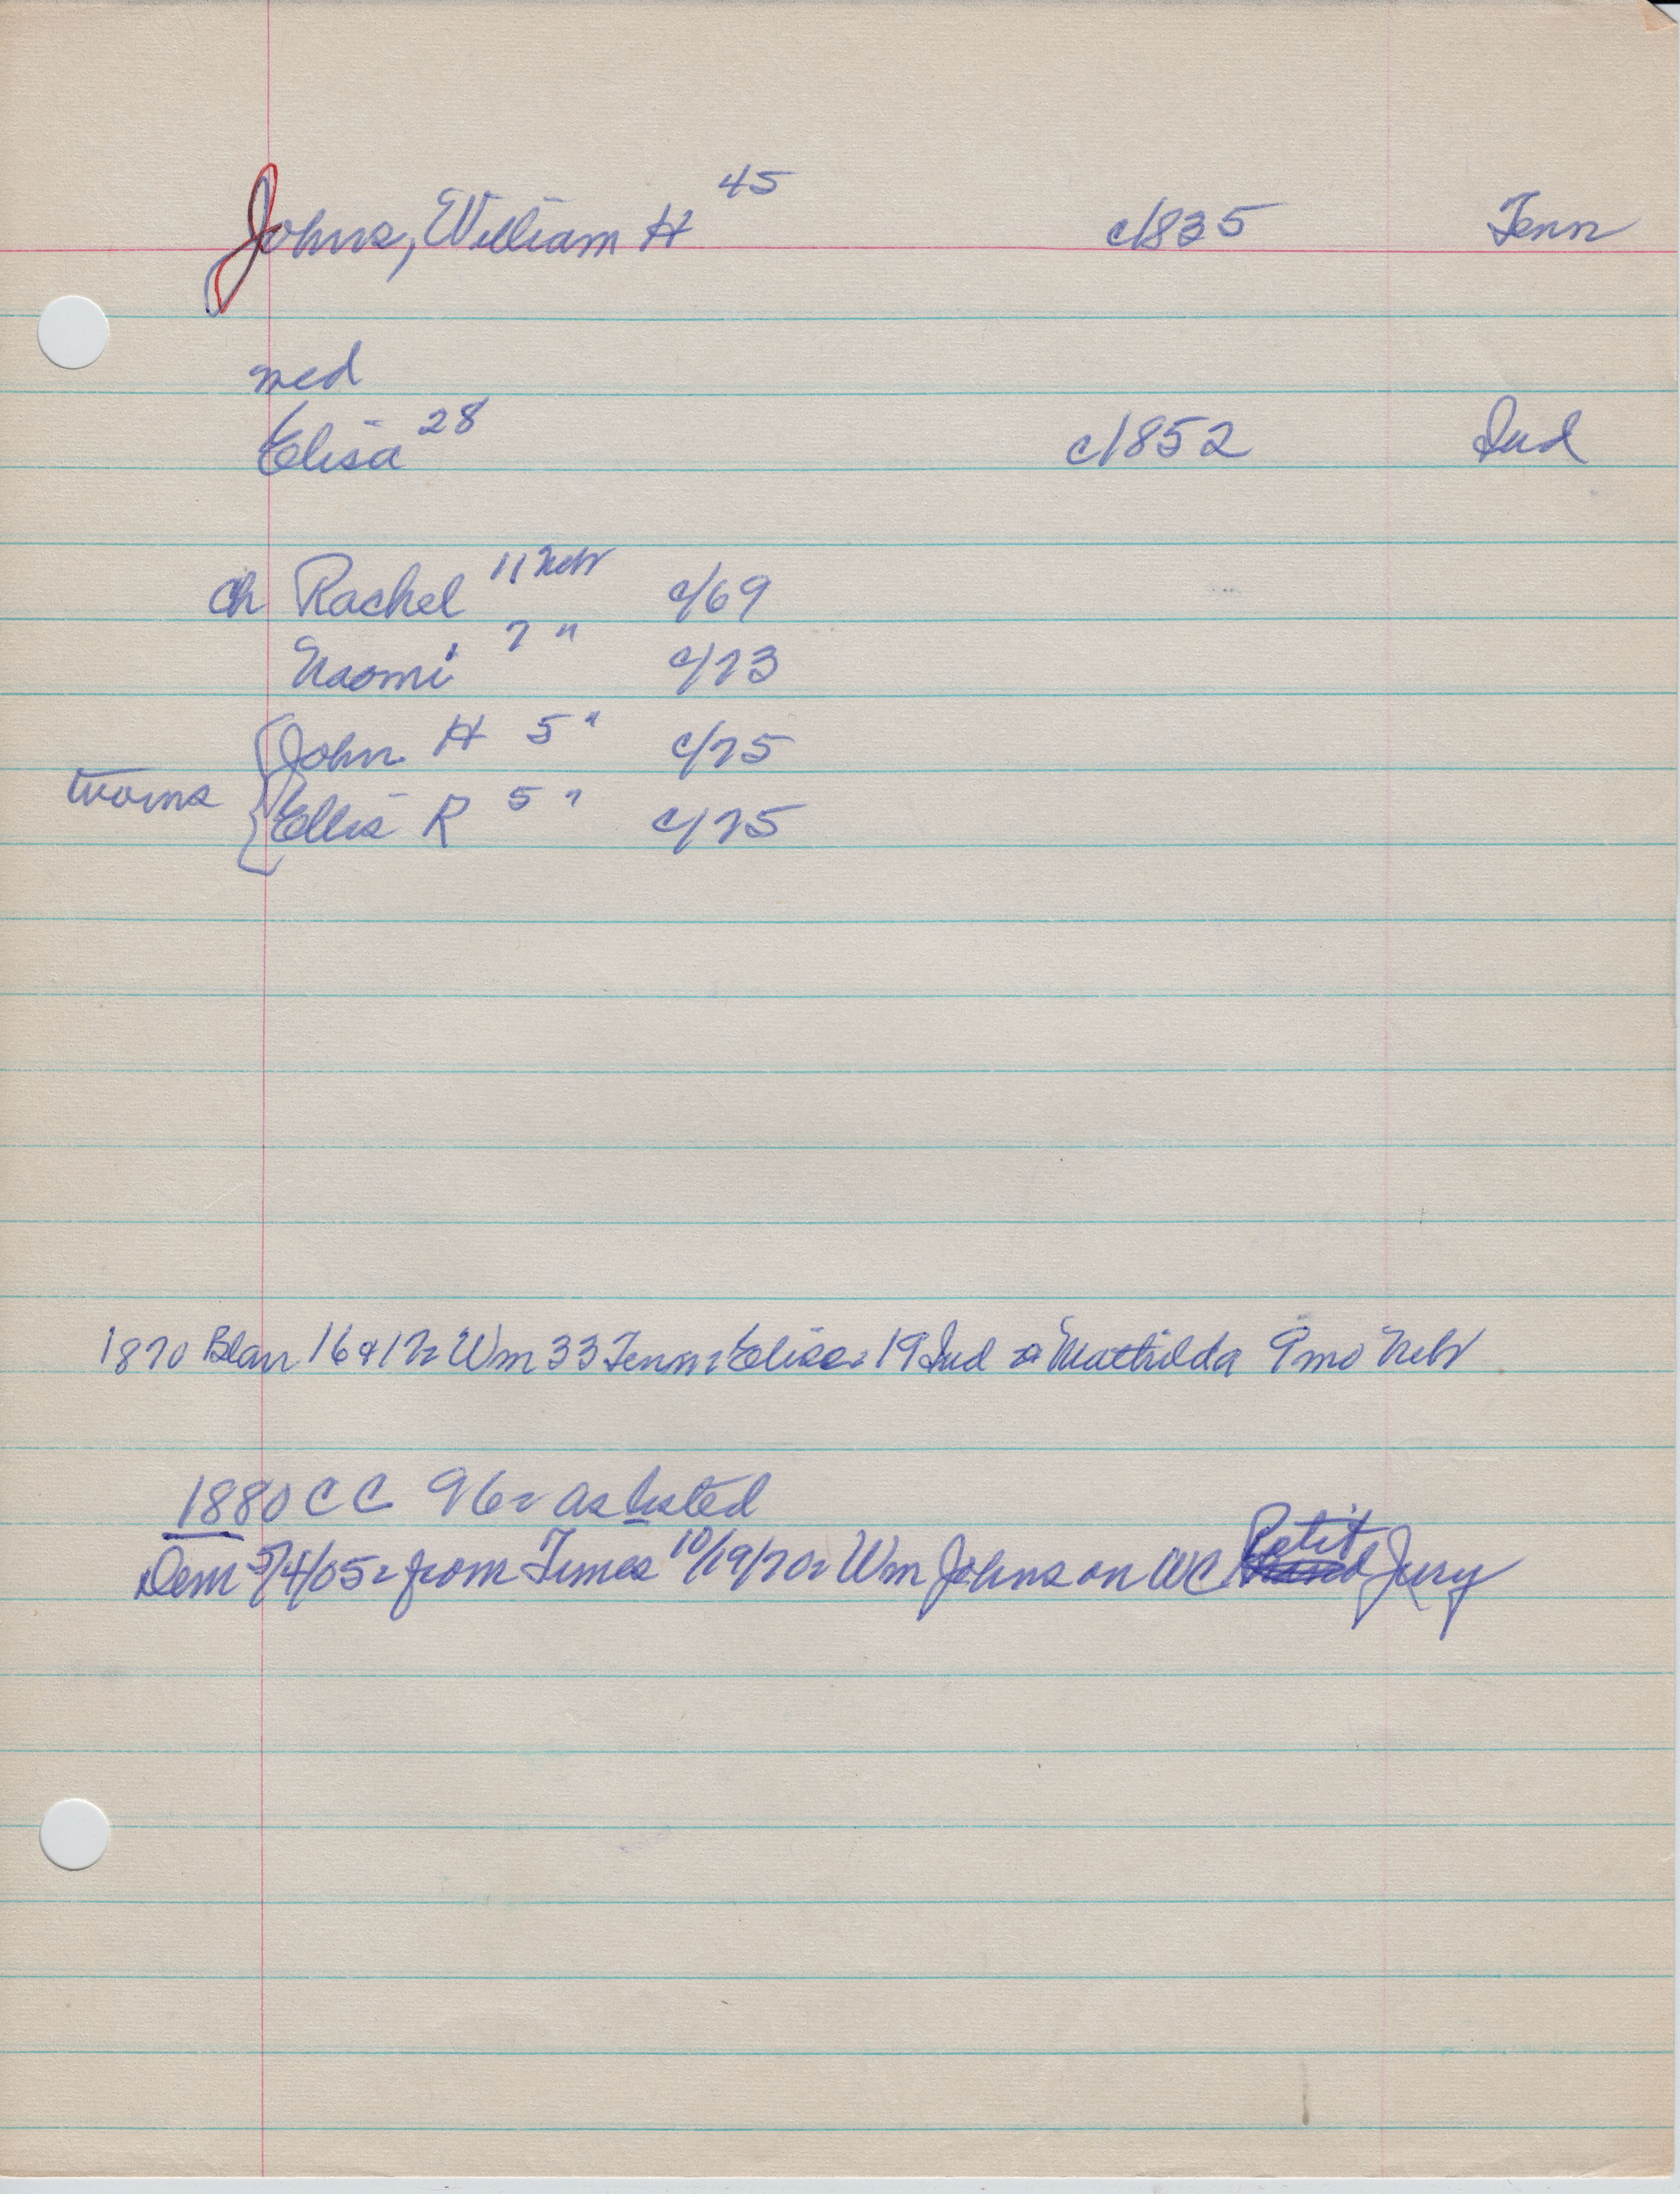 Johns, William H 45 c/835 Tenn
med
Elisa 28 c/852 Ind
ch Rachel 11 Nebr c/69
Naomi 7 " c/73
John H 5 " c/75
twins
Ellis R 5 " c/75
1870 Blair 16&17= Wm 33 Tenn= Elisa= 19 Ind = Mathilda 9mo Nebr
1880 CC 96= as listed
Dem 5/4/05= from Times 10/19/70= Wm Johns on WC Petit Jury